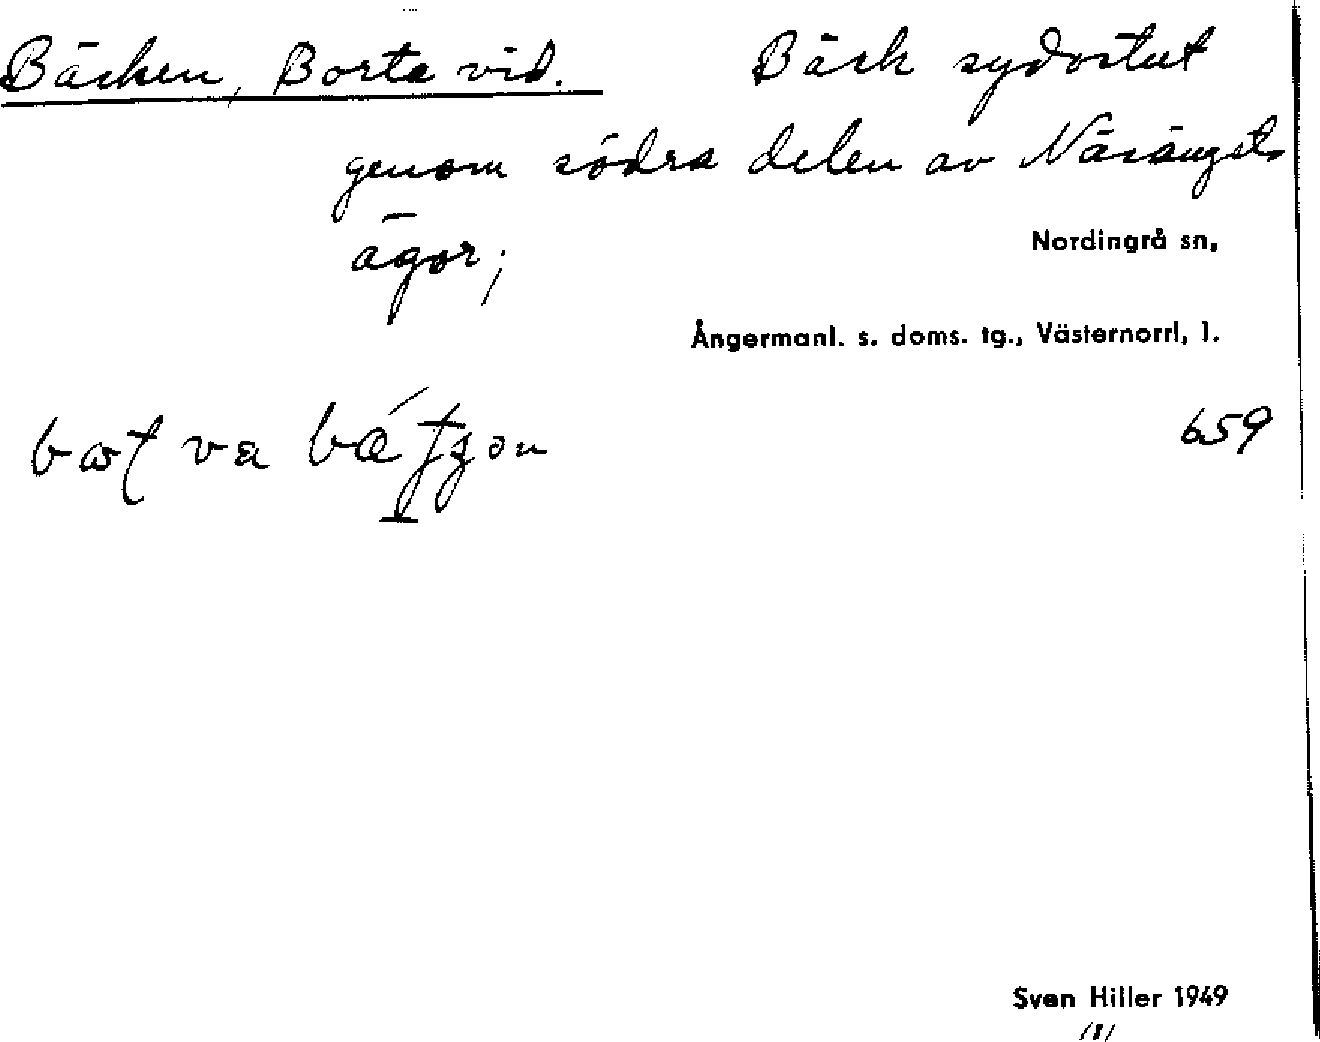 Bäcken, Borta vid. Bäck sydostut
genom södra delen av Näsängets
ägor;
Nordingrå sn,
Ångermanl. s. doms. tg., Västernorrl, l.
va
659
Sven Hiller 1949